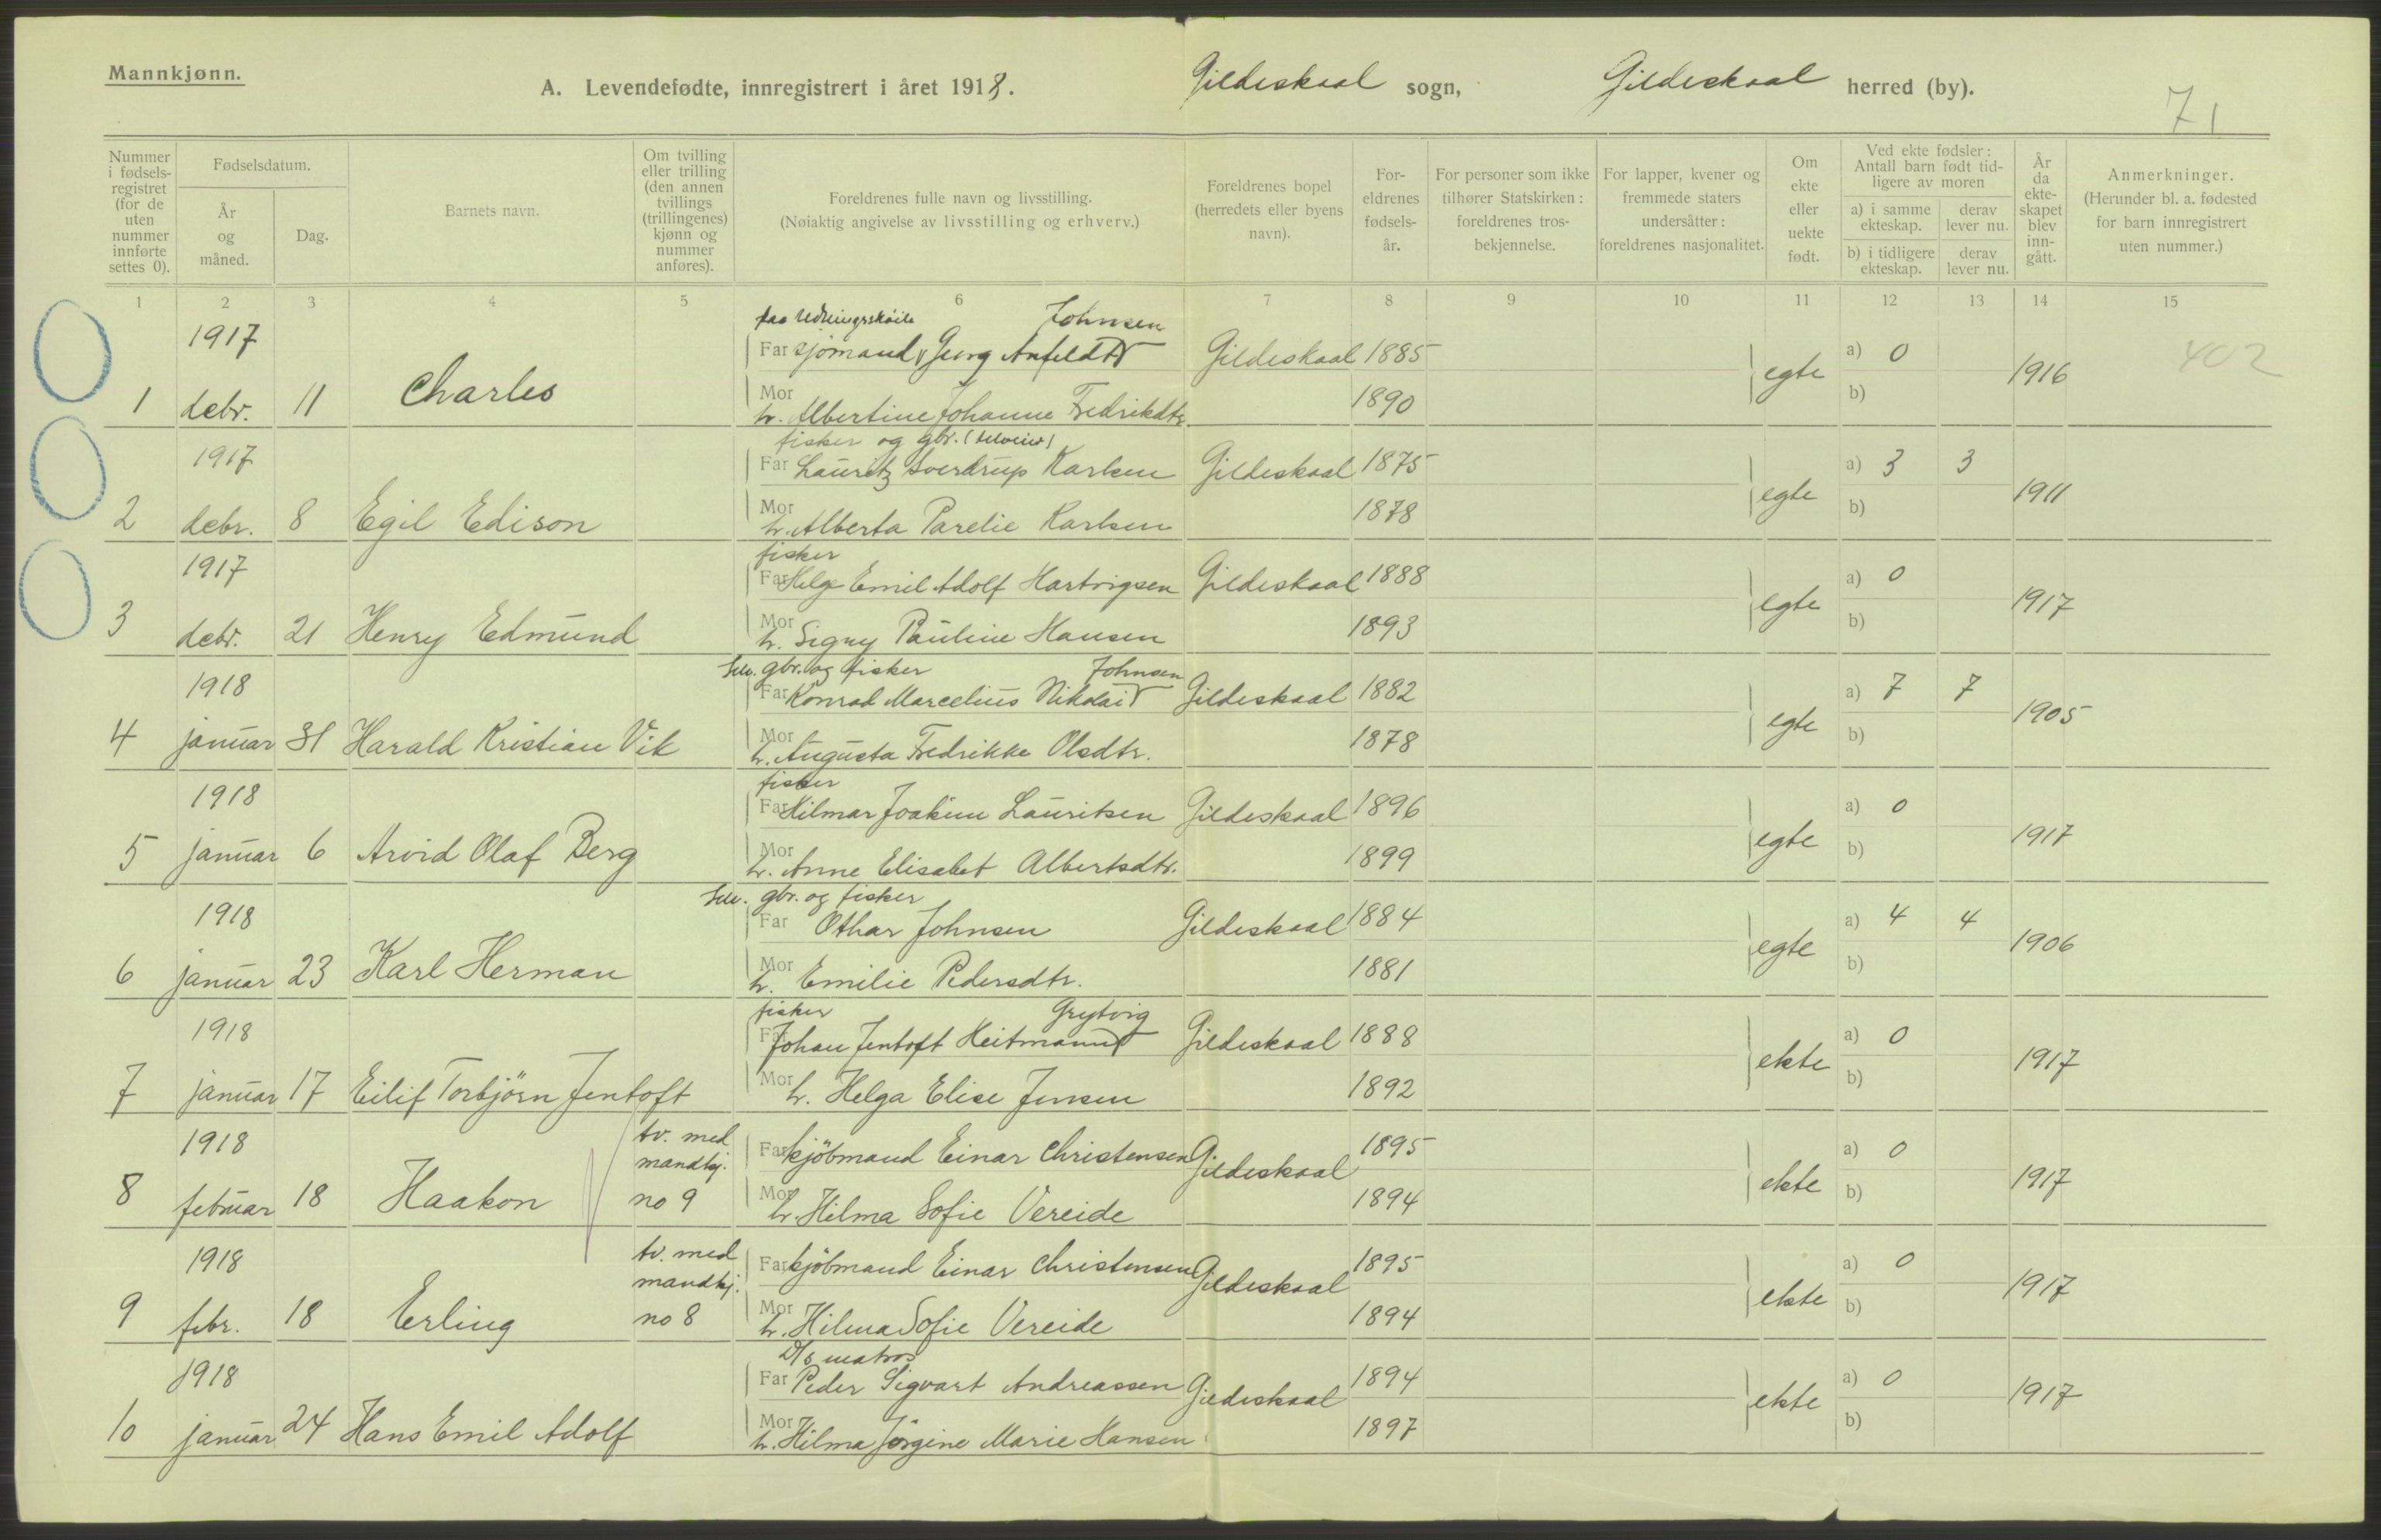 Mannkjønn.
A. Levendefødte, innregistrert i året 1918. Gildeskaal sogn, Gildeskaal herred (by).
71
Nummer i fødselsregistret (for de uten nummer innførte settes 0).
Fødselsdatum.
År og måned.
Dag.
Barnets navn.
Om tvilling eller trilling (den annen tvillings (trillingenes) kjønn og nummer anføres).
Foreldrenes fulle navn og livsstilling.
(Nøiaktig angivelse av livsstilling og erhverv.)
Foreldrenes bopel (herredets eller byens navn).
Foreldrenes fødselsår.
For personer som ikke tilhører Statskirken: foreldrenes trosbekjennelse.
For lapper, kvener og fremmede staters undersåtter: foreldrenes nasjonalitet.
Om ekte eller uekte født.
Ved ekte fødsler: Antall barn født tidligere av moren
a) i samme ekteskap. derav lever nu.
b) i tidligere ekteskap. derav lever nu.
År da ekteskapet blev inngått.
Anmerkninger.
(Herunder bl. a. fødested for barn innregistrert uten nummer.)
1 2 3 4 5 6 7 8 9 10 11 12 13 14 15
1917 Johnsen
Far sjømand Georg Anfeldt Gildeskaal 1885 egte a) 0 1916 402
1 debr. 11 Charles Mor h. Albertine Johanne Fredrikdtr. 1890 b)
fisker og gbr. (selveier)
1917 Far Lauritz Sverdrup Karlsen Gildeskaal 1875 egte a) 3 3 1911
2 debr. 8 Egil Edison Mor h. Alberta Parelie Karlsen 1878 b)
fisker
1917 Far Helge Emil Adolf Hartvigsen Gildeskaal 1888 egte a) 0 1917
3 debr. 21 Henry Edmund Mor h. Signy Pauline Hansen 1893 b)
selv. gbr. og fisker Johnsen
1918 Far Konrad Marcelius Nikolai Gildeskaal 1882 egte a) 7 7 1905
4 januar 31 Harald Kristian Vik Mor h. Augusta Fredrikke Olsdtr. 1878 b)
fisker
1918 Far Hilmar Joakim Lauritsen Gildeskaal 1896 egte a) 0 1917
5 januar 6 Arvid Olaf Berg Mor h. Anne Elisabet Albertsdtr. 1899 b)
selv. gbr. og fisker
1918 Far Othar Johnsen Gildeskaal 1884 egte a) 4 4 1906
6 januar 23 Karl Herman Mor h. Emilie Pedersdtr. 1881 b)
fisker Grytvig
1918 Far Johan Jentoft Heitmann Gildeskaal 1888 ekte a) 0 1917
7 januar 17 Eilif Torbjörn Jentoft Mor h. Helga Elise Jensen 1892 b)
1918 tv. med mandkj. Far kjöbmand Einar Christensen Gildeskaal 1895 ekte a) 0 1917
8 februar 18 Haakon no 9 Mor h. Hilma Sofie Vereide 1894 b)
1918 tv. med mandkj. Far kjöbmand Einar Christensen Gildeskaal 1895 ekte a) 0 1917
9 febr. 18 Erling no 8 Mor h. Hilma Sofie Vereide 1894 b)
D/s matros
1918 Far Peder Sigvart Andreassen Gildeskaal 1894 ekte a) 0 1917
10 januar 24 Hans Emil Adolf Mor h. Hilma Jörgine Marie Hansen 1897 b)